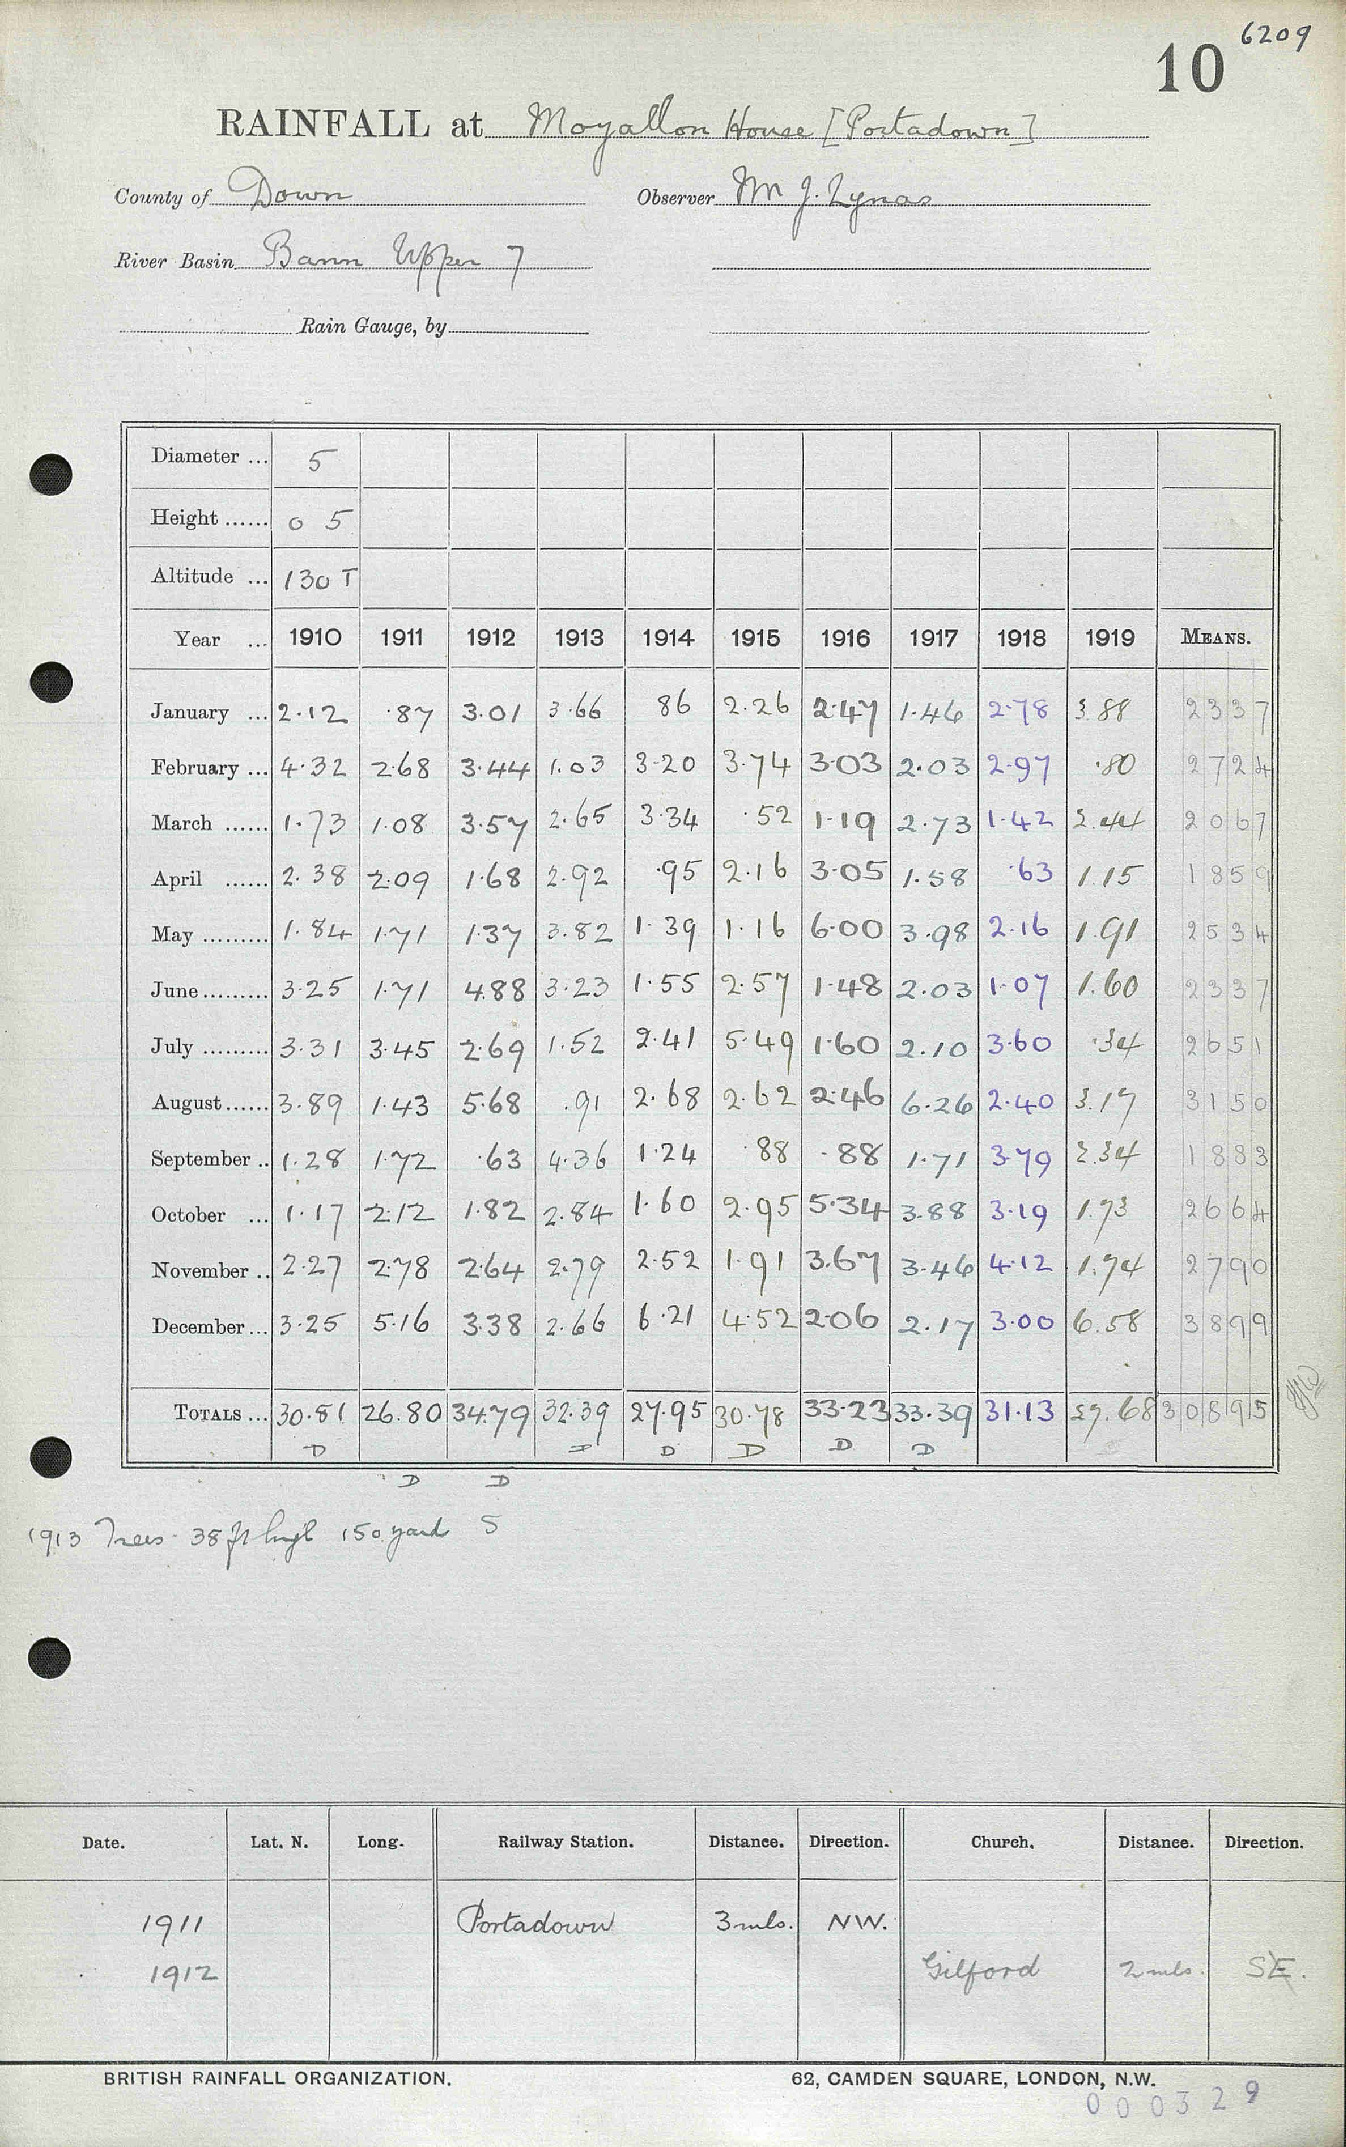 6209
10
RAINFALL at Moyallon House [Portadown]
County of Down Observer Mr J. Lynas
River Basin Bann Upper 7
Rain Gauge, by
Diameter ... 5
Height ...... 0 5
Altitude ... 130 T
Year ... 1910 1911 1912 1913 1914 1915 1916 1917 1918 1919 MEANS.
January ... 2.12 .87 3.01 3.66 86 2.26 2.47 1.46 2.78 3.88 2337
February ... 4.32 2.68 3.44 1.03 3.20 3.74 3.03 2.03 2.97 .80 2724
March ...... 1.73 1.08 3.57 2.65 3.34 .52 1.19 2.73 1.42 2.44 2067
April ...... 2.38 2.09 1.68 2.92 .95 2.16 3.05 1.58 .63 1.15 1859
May ......... 1.84 1.71 1.37 3.82 1.39 1.16 6.00 3.98 2.16 1.91 2534
June ......... 3.25 1.71 4.88 3.23 1.55 2.57 1.48 2.03 1.07 1.60 2337
July ......... 3.31 3.45 2.69 1.52 2.41 5.49 1.60 2.10 3.60 .34 2651
August ...... 3.89 1.43 5.68 .91 2.68 2.62 2.46 6.26 2.40 3.17 3150
September .. 1.28 1.72 .63 4.36 1.24 .88 .88 1.71 3.79 2.34 1883
October ... 1.17 2.12 1.82 2.84 1.60 2.95 5.34 3.88 3.19 1.73 2664
November .. 2.27 2.78 2.64 2.79 2.52 1.91 3.67 3.46 4.12 1.74 2790
December ... 3.25 5.16 3.38 2.66 6.21 4.52 2.06 2.17 3.00 6.58 3899
TOTALS ... 30.81 26.80 34.79 32.39 27.95 30.78 33.23 33.39 31.13 27.68 30895
D D D D D D
D D
1913 Trees 38 ft high 150 yards S
Date. Lat. N. Long. Railway Station. Distance. Direction. Church. Distance. Direction.
1911 Portadown 3 mls. NW.
1912 Gilford 2 mls. SE.
BRITISH RAINFALL ORGANIZATION. 62, CAMDEN SQUARE, LONDON, N.W.
000329